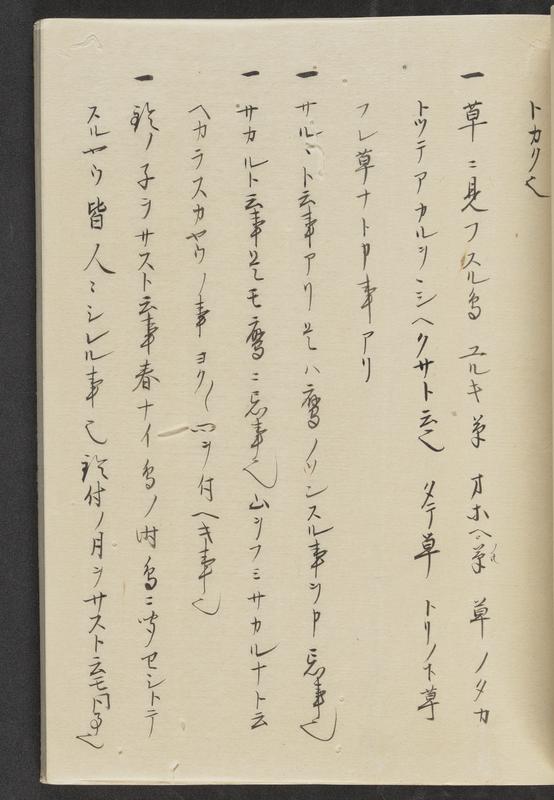 トカク也
一 草ニ見フスル鳥 ユルキ草 オホヘ草 草ノタカ
トツテアカルヲニシヘクサト云也 タテ草 トリノ下草
フレ草ナト申事アリ
一 サルヽト云事アリ是ハ鷹ノソンスル事ヲ申 忌事也
一 サカルト云事是モ鷹ニ忌事也 山ヲフミサカルナト云
ヘカラスカヤウノ事ヨク〱心ヲ付ヘキ事也
一 鈴ノ子ヲサスト云事春ナイ鳥ノ時鳥ニ聞セシトテ
スルヤウ皆人ニシレル事也 鈴付ノ月ヲサスト云モ同事也